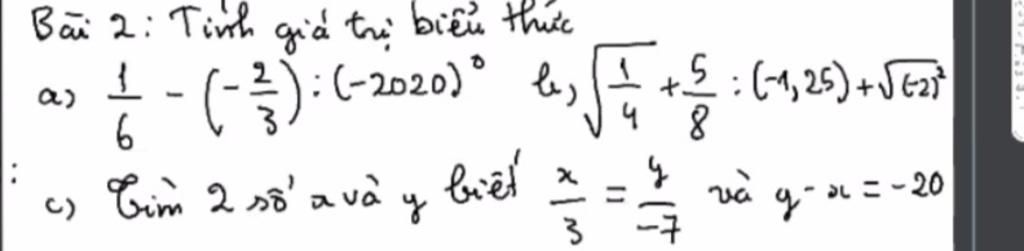 Bài 2: Tính giá trị biểu thức
a) 1/6 - (-2/3) : (-2020)^0 b) √(1/4) + 5/8 : (-1,25) + √(-2)²
c) Tìm 2 số x và y biết x/3 = y/-7 và y - x = -20